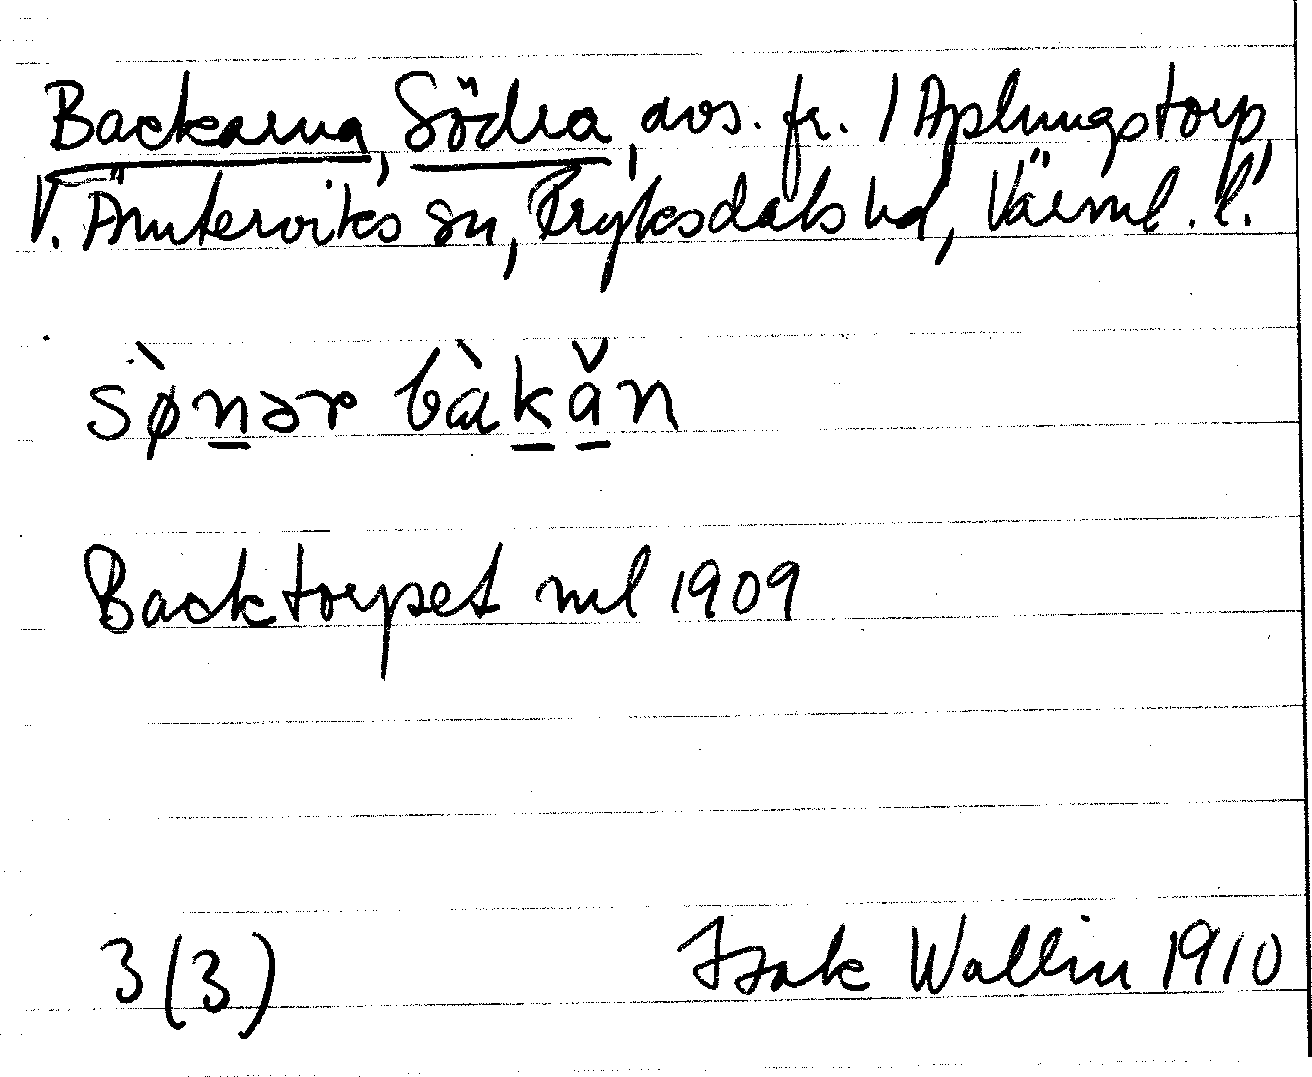 Backarna, Södra, avs. fr. 1 Aplungstorp,
V. Ämterviks sn, Fryksdals hd, Värml. l.
sø̀nər bàkǎn
Backtorpet ml 1909
3 (3) Isak Wallin 1910